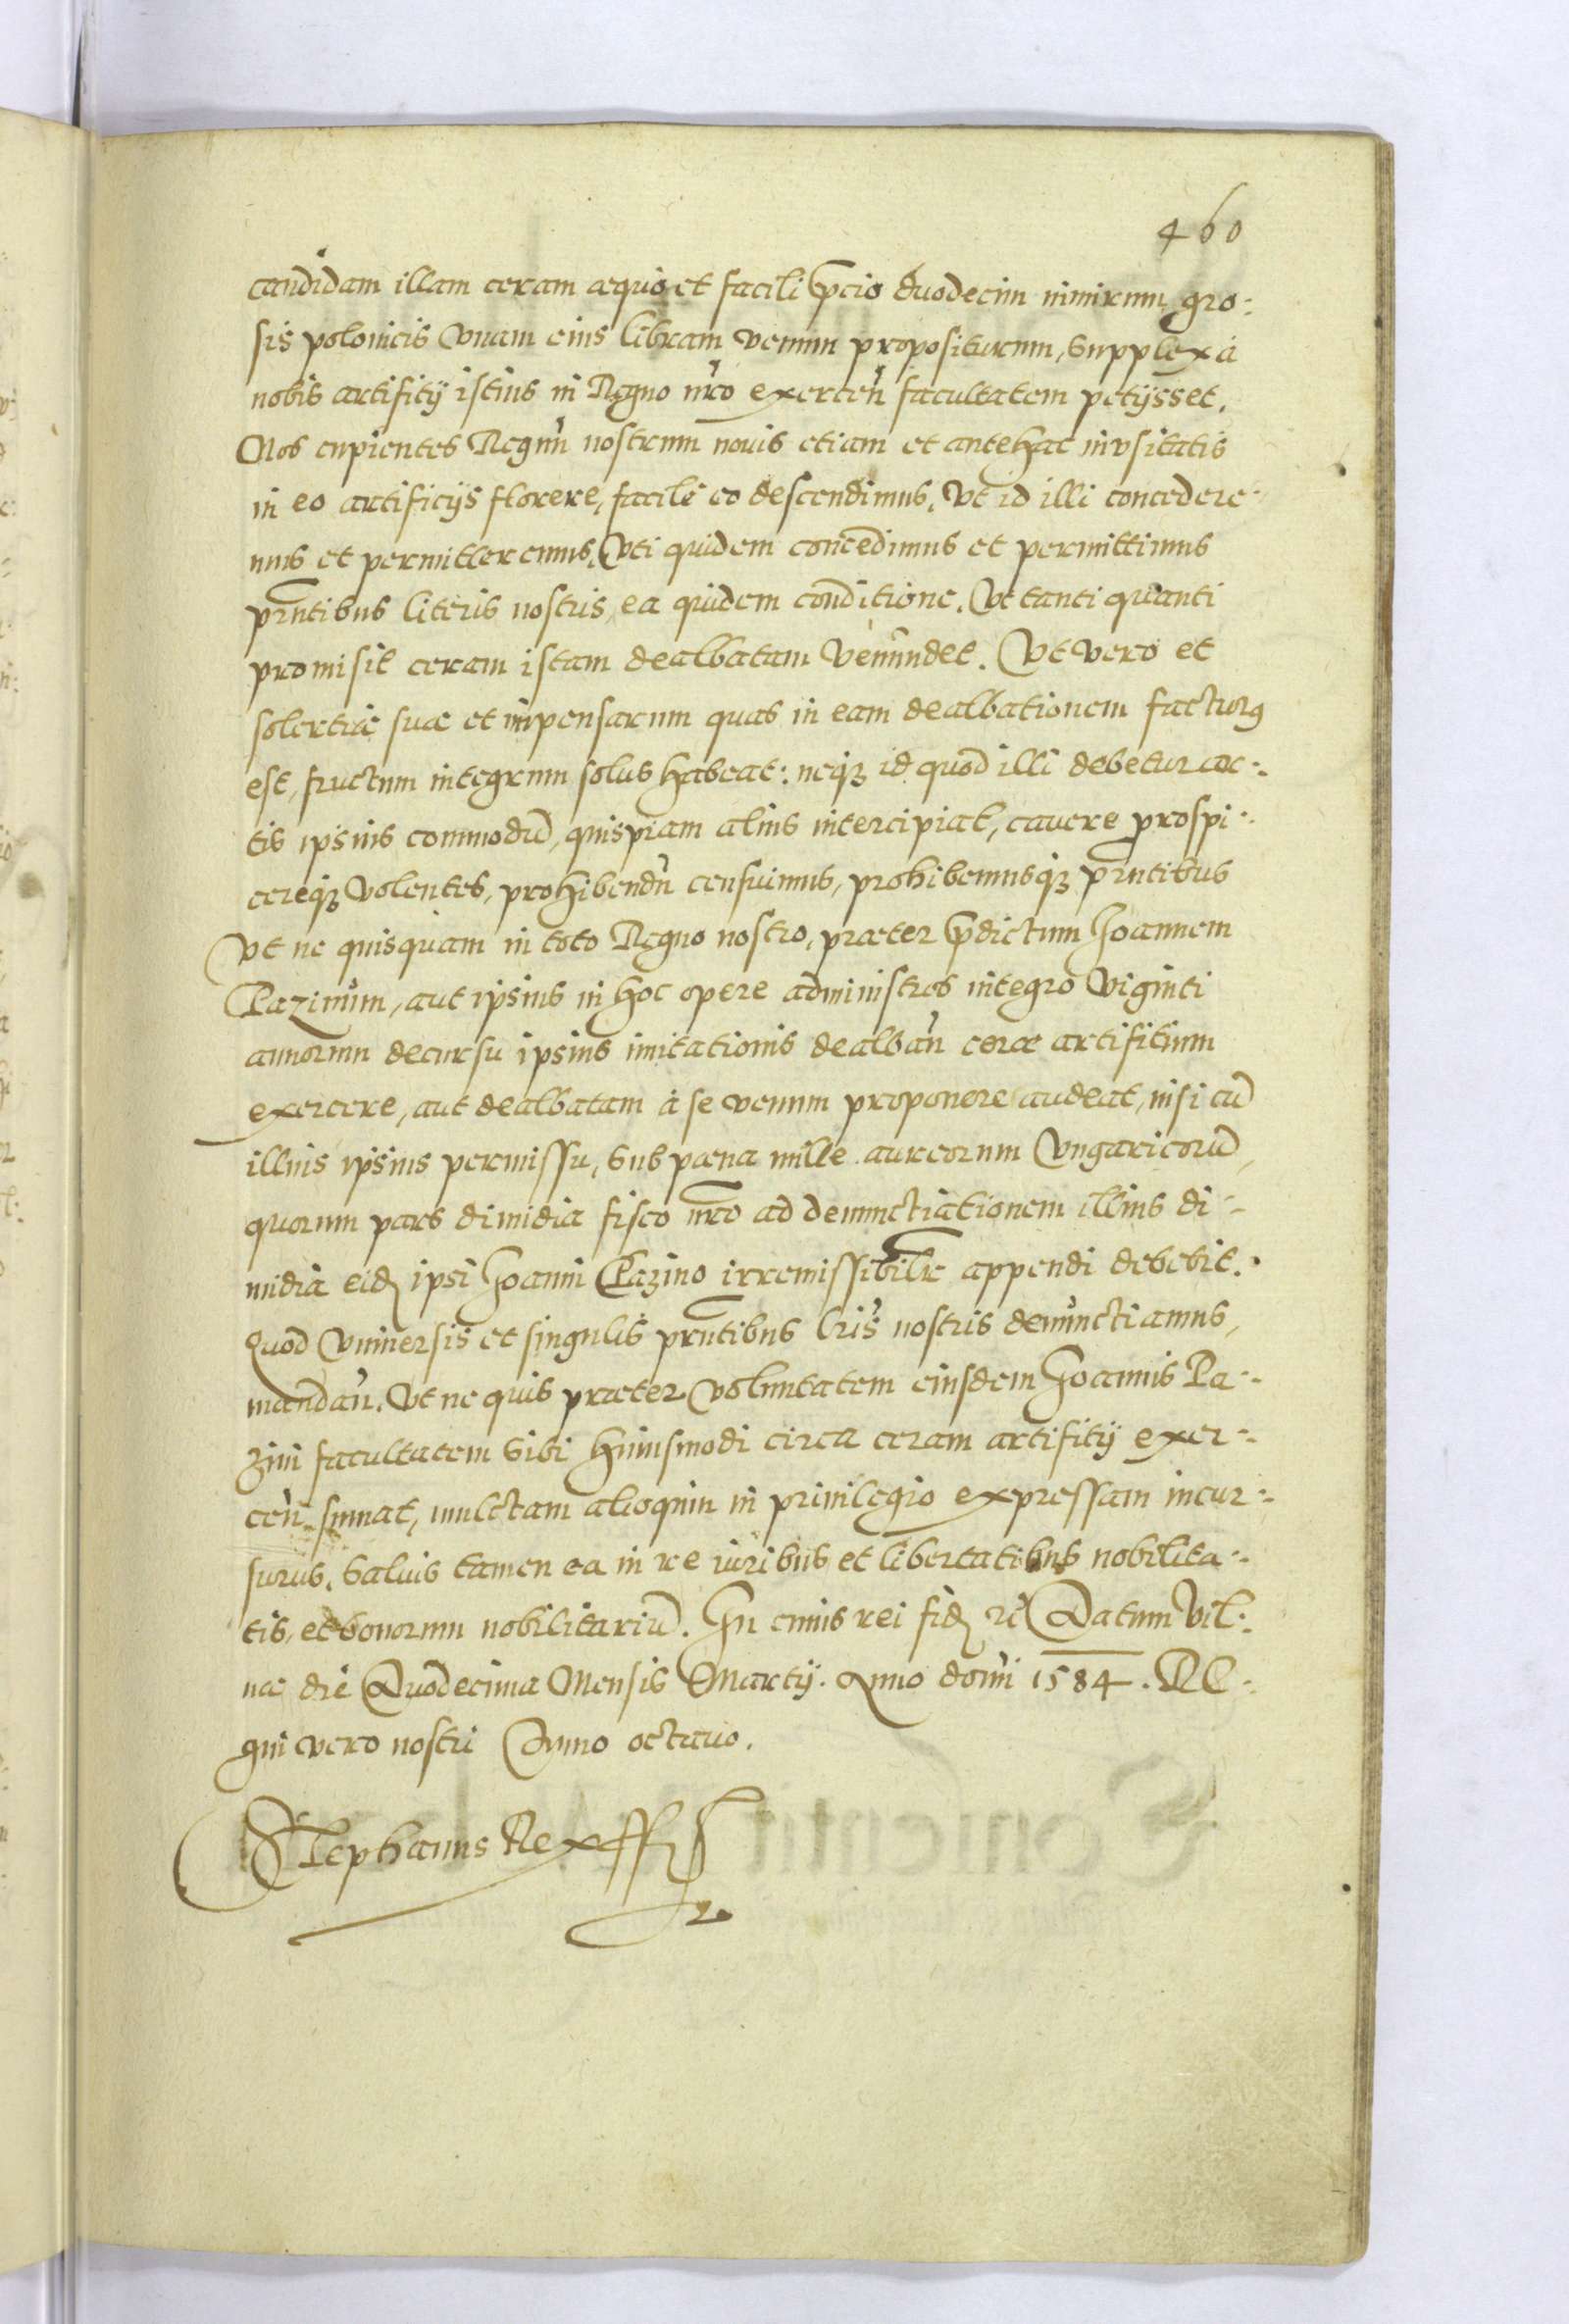 460
candidam illam ceram æquo et facili p̄cio duodecim nimirum gro:
sis polonicis vnam eius libram venum propositurum, supplex à
nobis artifitij istius in Regno nr̄o exercen̄ facultatem petijsset.
Nos cupientes Regnū nostrum nouis etiam et antehac invsitatis
in eo artificijs florere, facile eo descendimus, vt id illi concedere-
mus et permitteremus, vti quidem concedimus et permittimus
prn̄tibus literis nostris, ea quidem conditione. Vt tanti quanti
promisit ceram istam dealbatam venūndet. Vt vero et
solertiæ suæ et inpensarum quas in eam dealbationem facturꝰ
est, fructum integrum solus habeat: neqꝫ id quod illi debetur ar-
tis ipsius commodū, quispiam alius intercipiat, cauere prospi-
cereqꝫ volentes, prohibendū censuimus, prohibemusqꝫ prn̄tibus
Vt ne quisquam in toto Regno nostro, præter p̄dictum Joannem
Pazinum, aut ipsius in hoc opere administros integro viginti
annorum decursu ipsius imitationis dealban̄ ceræ artifitium
exercere, aut dealbatam à se venum proponere audeat, nisi cū
illius ipsius permissu, sub pœna mille aureorum vngaricorū,
quorum pars dimidia fisco nr̄o ad denunctiationem illius di-
midia eidꝫ ipsi Joanni Pazino irremissibilr̄ appendi debebit.
Quod vniuersis et singulis prn̄tibus lr̄is nostris denunctiamus,
mandan̄. Vt ne quis præter voluntatem eiusdem Joannis Pa-
zini facultatem sibi huiusmodi circa ceram artifitij exer-
cen̄ sumat, mulctam alioquin in priuilegio expressam incur-
surus. Saluis tamen ea in re iuribus et libertatibus nobilita-
tis, et bonorum nobilitariū. In cuius rei fidꝫ &c̄ Datum Vil:
næ die Duodecima Mensis Martij. Anno domī 1584. Re-
gni vero nostri Anno octauo.
Stephanus Rex ssst